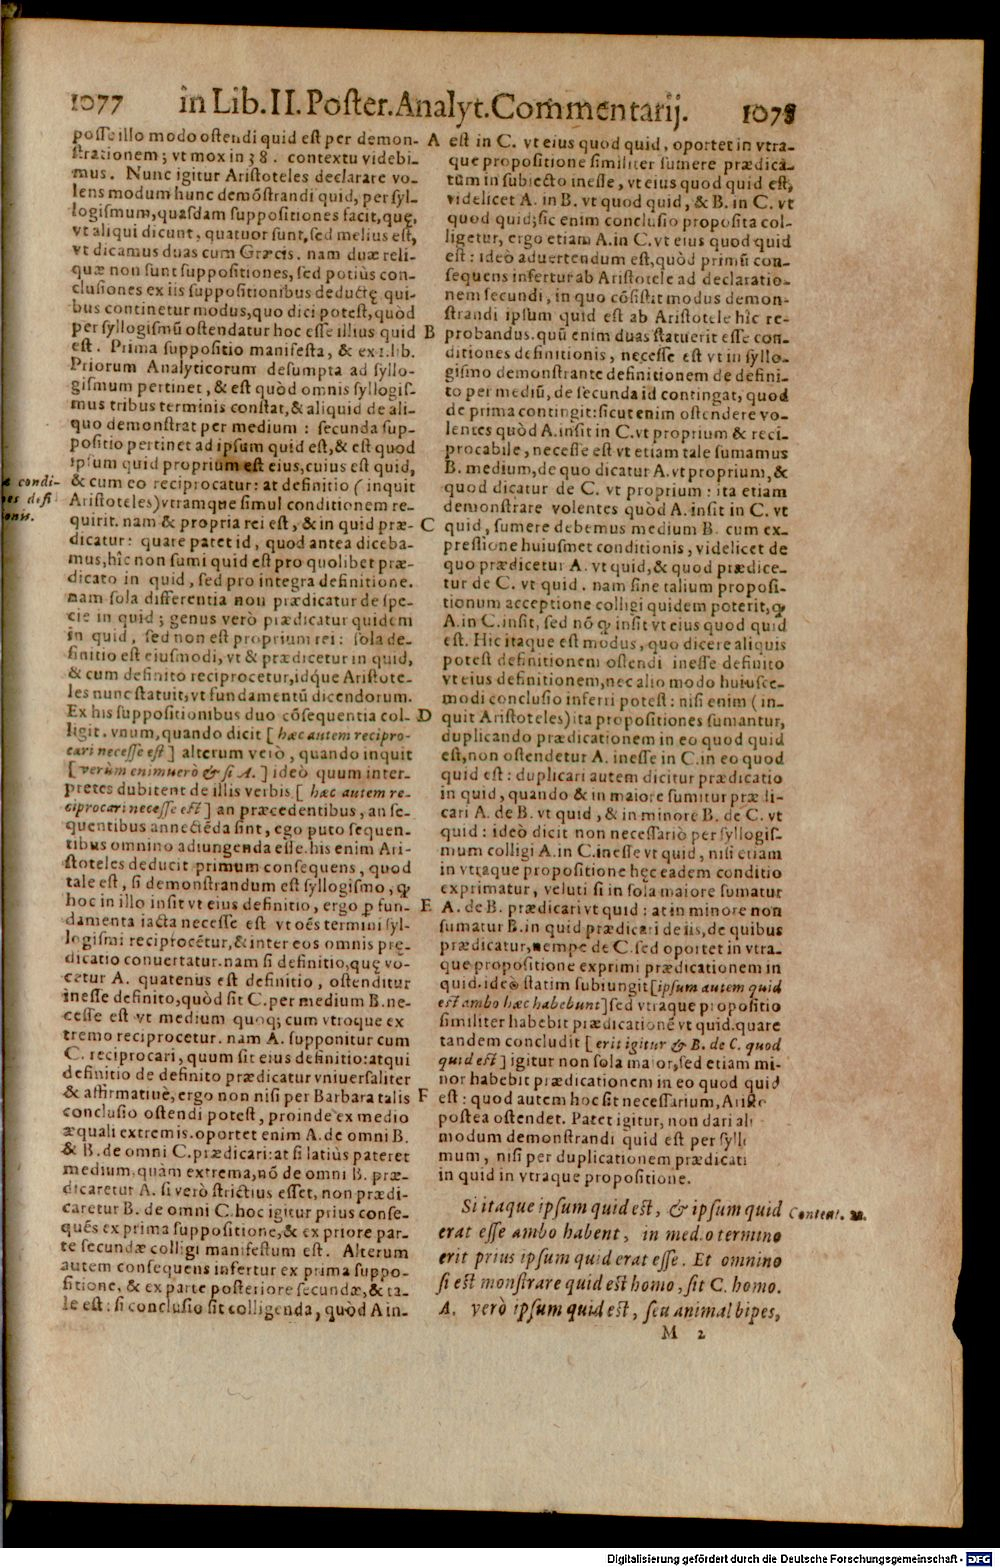 1077 in Lib. II. Poſter. Analyt. Commentarij. 1078
poſſe illo modo oſtendi quid eſt per demon-
ſtrationem; vt mox in 38. contextu videbi-
mus. Nunc igitur Ariſtoteles declarare vo-
lens modum hunc demõſtrandi quid, per ſyl-
logiſmum, quaſdam ſuppoſitiones facit, quę,
vt aliqui dicunt, quatuor ſunt, ſed melius eſt,
vt dicamus duas cum Græcis. nam duæ reli-
quæ non ſunt ſuppoſitiones, ſed potiùs con-
cluſiones ex iis ſuppoſitionibus deductę qui-
bus continetur modus, quo dici poteſt, quòd
per ſyllogiſmũ oſtendatur hoc eſſe illius quid
eſt. Prima ſuppoſitio manifeſta, & ex 1. lib.
Priorum Analyticorum deſumpta ad ſyllo-
giſmum pertinet, & eſt quòd omnis ſyllogiſ-
mus tribus terminis conſtat, & aliquid de ali-
quo demonſtrat per medium: ſecunda ſup-
poſitio pertinet ad ipſum quid eſt, & eſt quod
ipſum quid proprium eſt eius, cuius eſt quid,
& cum eo reciprocatur: at definitio (inquit
Ariſtoteles) vtramque ſimul conditionem re-
quirit. nam & propria rei eſt, & in quid præ-
dicatur: quare patet id, quod antea diceba-
mus, hîc non ſumi quid eſt pro quolibet præ-
dicato in quid, ſed pro integra definitione.
nam ſola differentia non prædicatur de ſpe-
cie in quid; genus verò prædicatur quidem
in quid, ſed non eſt proprium rei: ſola de-
finitio eſt eiuſmodi, vt & prædicetur in quid,
& cum definito reciprocetur, idque Ariſtote-
les nunc ſtatuit, vt fundamentũ dicendorum.
Ex his ſuppoſitionibus duo cõſequentia col-
ligit. vnum, quando dicit [hæc autem recipro-
cari neceſſe eſt] alterum verò, quando inquit
[verùm enimuerò & ſi A.] ideò quum inter-
pretes dubitent de illis verbis [hæc autem re-
ciprocari neceſſe eſt] an præcedentibus, an ſe-
quentibus annectẽda ſint, ego puto ſequen-
tibus omnino adiungenda eſſe. his enim Ari-
ſtoteles deducit primum conſequens, quod
tale eſt, ſi demonſtrandum eſt ſyllogiſmo, ꝙ
hoc in illo inſit vt eius definitio, ergo ꝑ fun-
damenta iacta neceſſe eſt vt oẽs termini ſyl-
logiſmi reciprocẽtur, & inter eos omnis prę-
dicatio conuertatur. nam ſi definitio, quę vo-
cetur A. quatenus eſt definitio, oſtenditur
ineſſe definito, quòd ſit C. per medium B. ne-
ceſſe eſt vt medium quoq; cum vtroque ex
tremo reciprocetur. nam A. ſupponitur cum
C. reciprocari, quum ſit eius definitio: atqui
definitio de definito prædicatur vniuerſaliter
& affirmatiuè, ergo non niſi per Barbara talis
concluſio oſtendi poteſt, proinde ex medio
æquali extremis. oportet enim A. de omni B.
& B. de omni C. prædicari: at ſi latiùs pateret
medium, quàm extrema, nõ de omni B. præ-
dicaretur A. ſi verò ſtrictius eſſet, non prædi-
caretur B. de omni C. hoc igitur prius conſe-
quẽs ex prima ſuppoſitione, & ex priore par-
te ſecundæ colligi manifeſtum eſt. Alterum
autem conſequens infertur ex prima ſuppo-
ſitione, & ex parte poſteriore ſecundæ, & ta-
le eſt: ſi concluſio ſit colligenda, quòd A in-
condi-
defi
onis.
A
B
C
D
E
F
eſt in C. vt eius quod quid, oportet in vtra-
que propoſitione ſimiliter ſumere prædica-
tũm in ſubiecto ineſſe, vt eius quod quid eſt,
videlicet A. in B. vt quod quid, & B. in C. vt
quod quid; ſic enim concluſio propoſita col-
ligetur, ergo etiam A. in C. vt eius quod quid
eſt: ideò aduertendum eſt, quòd primũ con-
ſequens infertur ab Ariſtotele ad declaratio-
nem ſecundi, in quo cõſiſtit modus demon-
ſtrandi ipſum quid eſt ab Ariſtotele hîc re-
probandus. quũ enim duas ſtatuerit eſſe con-
ditiones definitionis, neceſſe eſt vt in ſyllo-
giſmo demonſtrante definitionem de defini-
to per mediũ, de ſecunda id contingat, quod
de prima contingit: ſicut enim oſtendere vo-
lentes quòd A. inſit in C. vt proprium & reci-
procabile, neceſſe eſt vt etiam tale ſumamus
B. medium, de quo dicatur A. vt proprium, &
quod dicatur de C. vt proprium: ita etiam
demonſtrare volentes quòd A. inſit in C. vt
quid, ſumere debemus medium B. cum ex-
preſſione huiuſmet conditionis, videlicet de
quo prædicetur A. vt quid, & quod prædice-
tur de C. vt quid. nam ſine talium propoſi-
tionum acceptione colligi quidem poterit, ꝙ
A. in C. inſit, ſed nõ ꝙ inſit vt eius quod quid
eſt. Hic itaque eſt modus, quo dicere aliquis
poteſt definitionem oſtendi ineſſe definito
vt eius definitionem, nec alio modo huiuſce-
modi concluſio inferri poteſt: niſi enim (in-
quit Ariſtoteles) ita propoſitiones ſumantur,
duplicando prædicationem in eo quod quid
eſt, non oſtendetur A. ineſſe in C. in eo quod
quid eſt: duplicari autem dicitur prædicatio
in quid, quando & in maiore ſumitur prædi-
cari A. de B. vt quid, & in minore B. de C. vt
quid: ideò dicit non neceſſariò per ſyllogiſ-
mum colligi A. in C. ineſſe vt quid, niſi etiam
in vtraque propoſitione hęc eadem conditio
exprimatur, veluti ſi in ſola maiore ſumatur
A. de B. prædicari vt quid: at in minore non
ſumatur B. in quid prædicari de iis, de quibus
prædicatur, nempe de C. ſed oportet in vtra-
que propoſitione exprimi prædicationem in
quid. ideò ſtatim ſubiungit [ipſum autem quid
eſt ambo hæc habebunt] ſed vtraque propoſitio
ſimiliter habebit prædicationẽ vt quid. quare
tandem concludit [erit igitur & B. de C. quod
quid eſt] igitur non ſola maior, ſed etiam mi-
nor habebit prædicationem in eo quod quid
eſt: quod autem hoc ſit neceſſarium, Ariſto
poſtea oſtendet. Patet igitur, non dari ali
modum demonſtrandi quid eſt per ſylli
mum, niſi per duplicationem prædicati
in quid in vtraque propoſitione.
Si itaque ipſum quid eſt, & ipſum quid
erat eſſe ambo habent, in medio termino
erit prius ipſum quid erat eſſe. Et omnino
ſi eſt monſtrare quid eſt homo, ſit C. homo.
A. verò ipſum quid eſt, ſeu animal bipes,
Context.
M 2
Digitalisierung gefördert durch die Deutsche Forschungsgemeinschaft - DFG